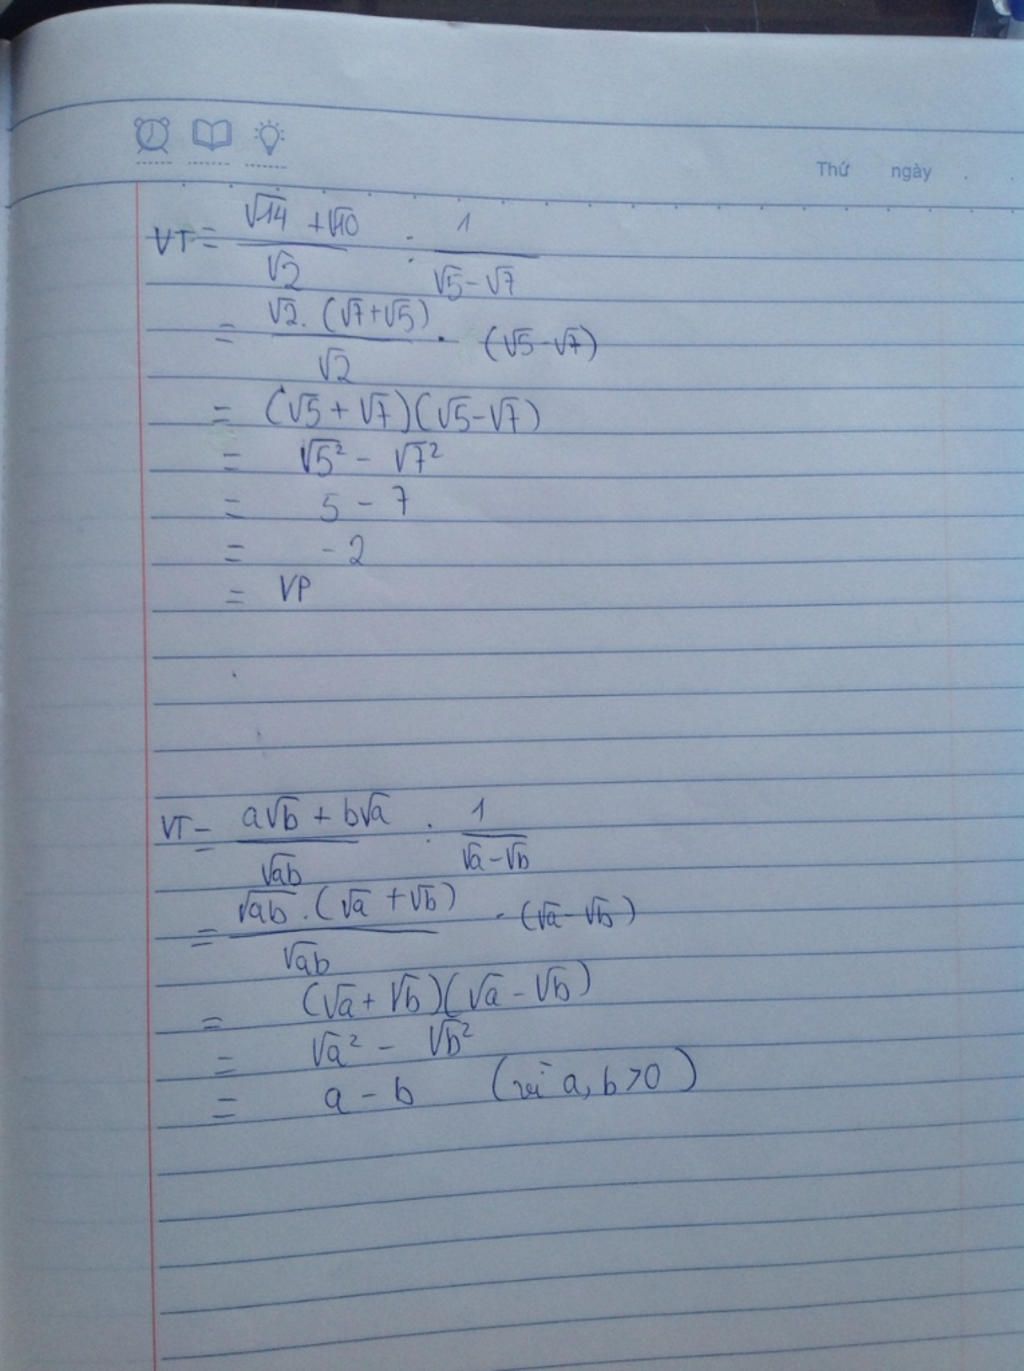 Thứ ngày
VT = \frac{\sqrt{14} + \sqrt{10}}{\sqrt{2}} : \frac{1}{\sqrt{5} - \sqrt{7}}
= \frac{\sqrt{2} . (\sqrt{7} + \sqrt{5})}{\sqrt{2}} . (\sqrt{5} - \sqrt{7})
= (\sqrt{5} + \sqrt{7})(\sqrt{5} - \sqrt{7})
= \sqrt{5}^2 - \sqrt{7}^2
= 5 - 7
= -2
= VP
VT = \frac{a\sqrt{b} + b\sqrt{a}}{\sqrt{ab}} : \frac{1}{\sqrt{a} - \sqrt{b}}
= \frac{\sqrt{ab} . (\sqrt{a} + \sqrt{b})}{\sqrt{ab}} . (\sqrt{a} - \sqrt{b})
= (\sqrt{a} + \sqrt{b})(\sqrt{a} - \sqrt{b})
= \sqrt{a}^2 - \sqrt{b}^2
= a - b (vì a, b > 0)